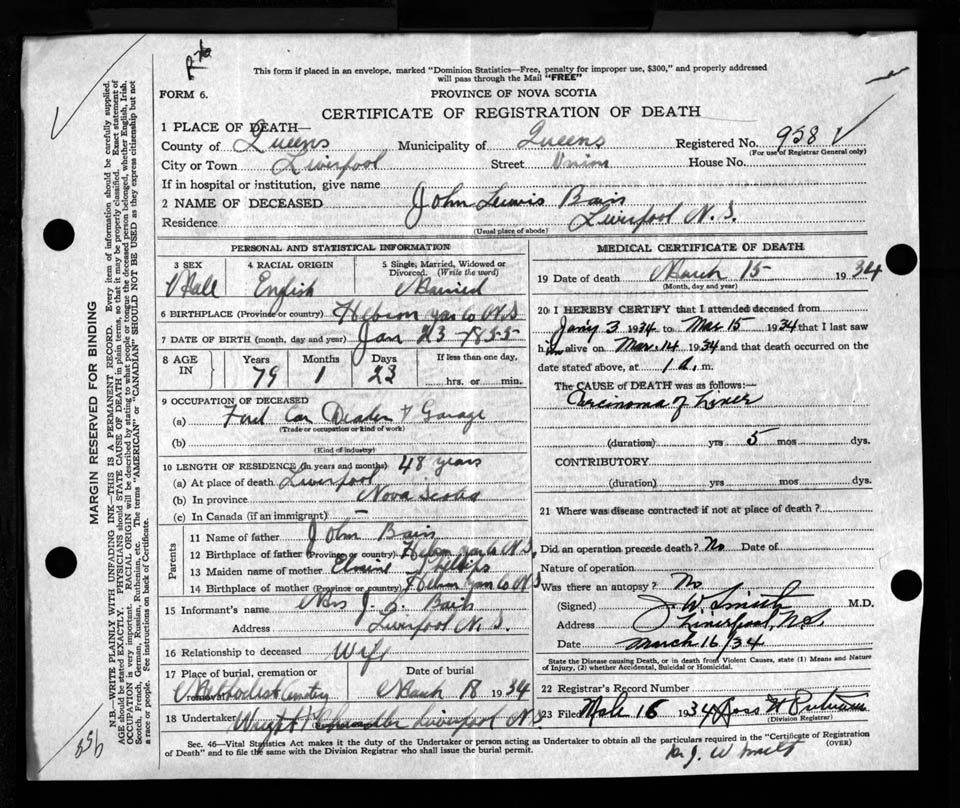 This form if placed in an envelope, marked "Dominion Statistics—Free, penalty for improper use, $300," and properly addressed
will pass through the Mail "FREE"
FORM 6.
PROVINCE OF NOVA SCOTIA
CERTIFICATE OF REGISTRATION OF DEATH
1 PLACE OF DEATH—
County of Queens Municipality of Queens Registered No. 958
(For use of Registrar General only)
City or Town Liverpool Street Union House No.
If in hospital or institution, give name
2 NAME OF DECEASED John Lewis Bain
Residence Liverpool N. S.
(Usual place of abode)
PERSONAL AND STATISTICAL INFORMATION
3 SEX Male
4 RACIAL ORIGIN English
5 Single, Married, Widowed or Divorced. (Write the word) Married
6 BIRTHPLACE (Province or country) Hebron Yar Co N S
7 DATE OF BIRTH (month, day and year) Jan 23 - 1855
8 AGE IN Years 79 Months 1 Days 23 If less than one day, hrs. or min.
9 OCCUPATION OF DECEASED
(a) Ford Car Dealer & Garage
(Trade or occupation or kind of work)
(b)
(Kind of industry)
10 LENGTH OF RESIDENCE (in years and months) 48 years
(a) At place of death Liverpool
(b) In province Nova Scotia
(c) In Canada (if an immigrant) —
Parents
11 Name of father John Bain
12 Birthplace of father (Province or country) Hebron Yar Co N. S.
13 Maiden name of mother
14 Birthplace of mother (Province or country) Hebron Yar Co N. S
15 Informant's name Mrs J. L. Bain
Address Liverpool N. S.
16 Relationship to deceased Wife
17 Place of burial, cremation or removal Methodist Cemetery
Date of burial March 18 1934
18 Undertaker Wright Liverpool N. S
MEDICAL CERTIFICATE OF DEATH
19 Date of death March 15 1934
(Month, day and year)
20 I HEREBY CERTIFY that I attended deceased from
Jany 3 1934 to Mar 15 1934 that I last saw
him alive on Mar. 14 1934 and that death occurred on the
date stated above, at 1 a. m.
The CAUSE of DEATH was as follows:—
Carcinoma of Liver
(duration) yrs 5 mos dys.
CONTRIBUTORY
(duration) yrs. mos. dys.
21 Where was disease contracted if not at place of death?
Did an operation precede death? No Date of
Nature of operation
Was there an autopsy? No
(Signed) J. W. Smith M.D.
Address Liverpool, N.S.
Date March 16/34
State the Disease causing Death, or in death from Violent Causes, state (1) Means and Nature
of Injury, (2) whether Accidental, Suicidal or Homicidal.
22 Registrar's Record Number
23 Filed Mch 16 1934
(Division Registrar)
Sec. 46—Vital Statistics Act makes it the duty of the Undertaker or person acting as Undertaker to obtain all the particulars required in the "Certificate of Registration
of Death" and to file the same with the Division Registrar who shall issue the burial permit.
(OVER)
MARGIN RESERVED FOR BINDING
N.B.—WRITE PLAINLY WITH UNFADING INK—THIS IS A PERMANENT RECORD. Every item of information should be carefully supplied.
AGE should be stated EXACTLY. PHYSICIANS should STATE CAUSE OF DEATH in plain terms, so that it may be properly classified. Exact statement of
OCCUPATION is very important. RACIAL ORIGIN will be described by stating to what people or tongue the deceased person belonged, whether English, Irish,
Scotch, French, German, Russian, Ruthenian, etc. The terms "AMERICAN" or "CANADIAN" SHOULD NOT BE USED as they express citizenship but not
a race or people. See instructions on back of Certificate.